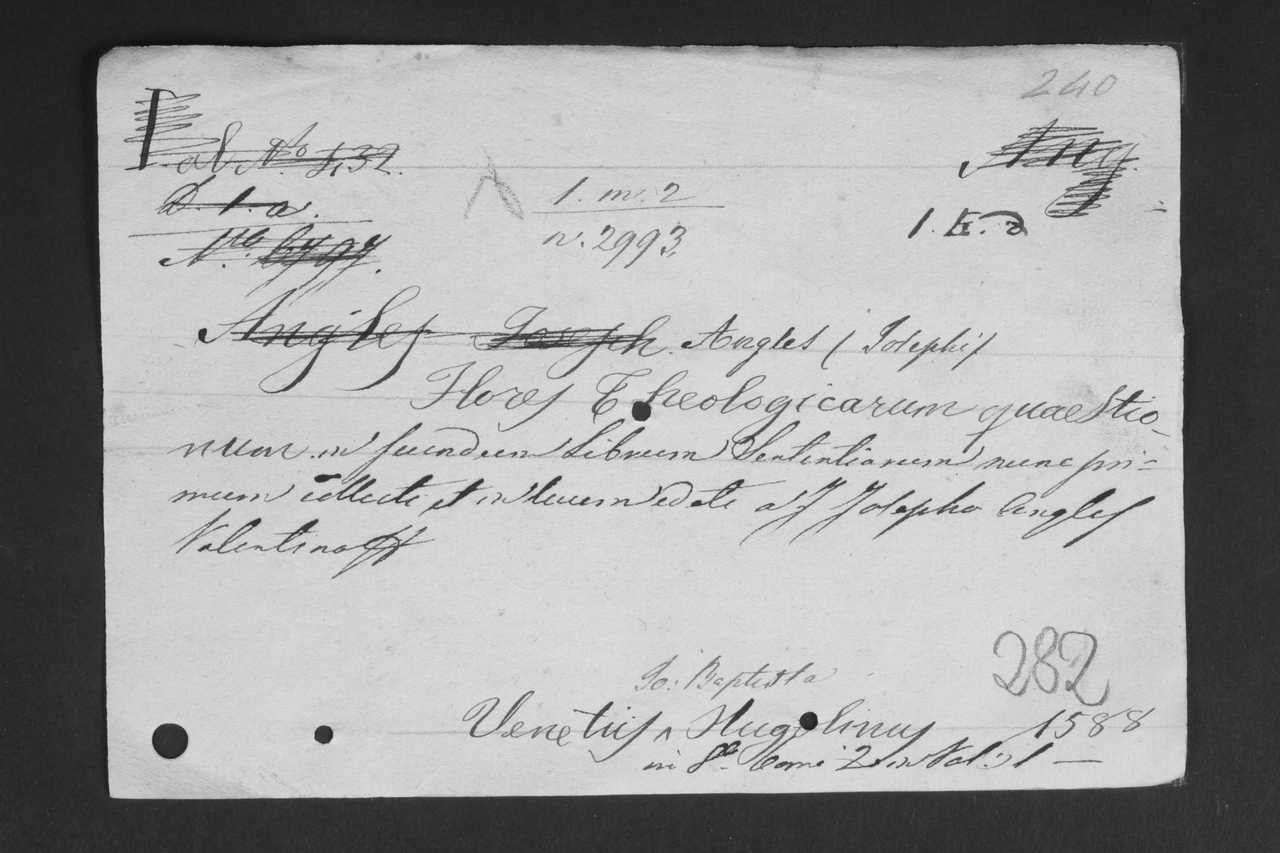 240
ab No 432.
Ang
D. 1. a.
1. m. 2
n. 2993
1. E. a
No. 6797.
Angles Joseph. Angles (Josephi)
Flores Theologicarum quaestio-
num in secundum Librum Sententiarum nunc pri=
mum collecti et in lucem editi a F. Josepho Angles
Valentino
282
Jo: Baptista
Venetiis Hugolinus 1588
in 8o. Tomi 2 in Vol: 1 —